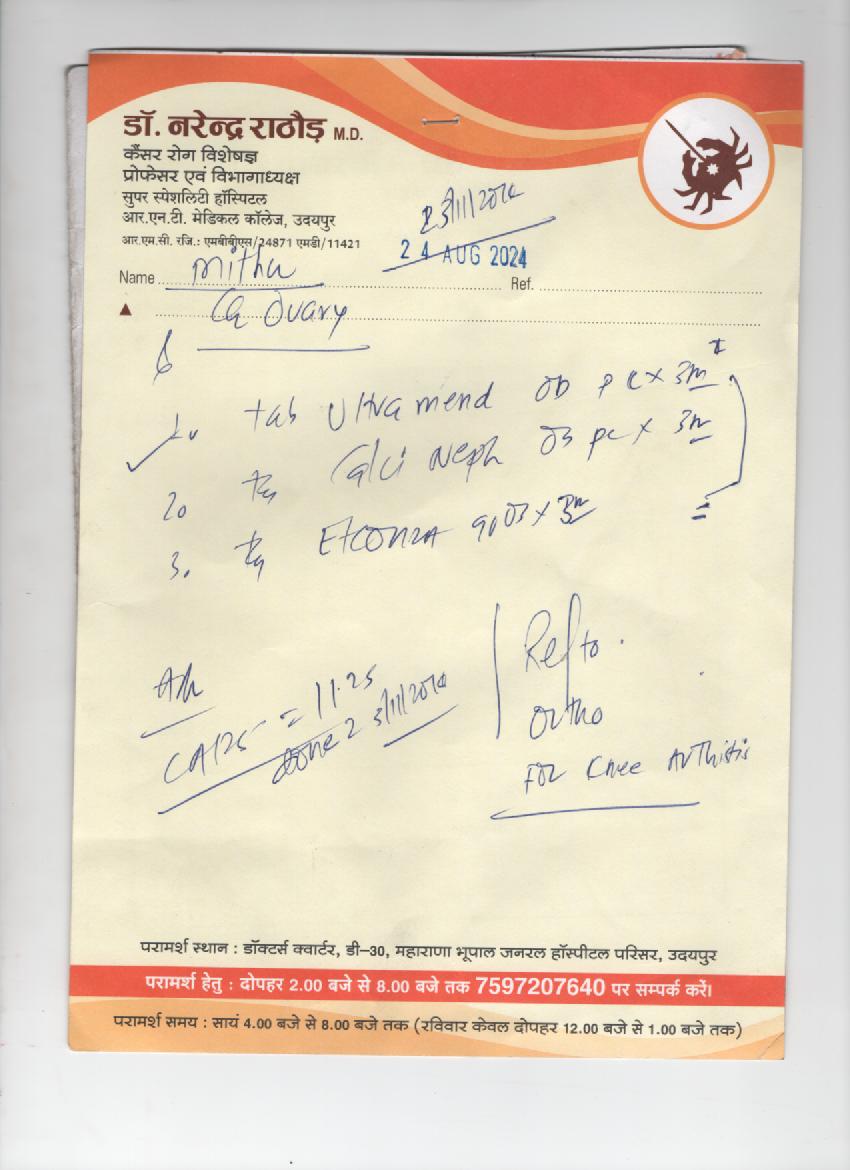 डॉ. नरेन्द्र राठौड़ M.D.
कैंसर रोग विशेषज्ञ
प्रोफेसर एवं विभागाध्यक्ष
सुपर स्पेशलिटी हॉस्पिटल
आर.एन.टी. मेडिकल कॉलेज, उदयपुर
आर.एम.सी. रजि.: एमबीबीएस/24871 एमडी/11421
24 AUG 2024
Name Mithu Ref.
Ca Ovary
tab Ultramend OD PC x 3m
2. Calci Neph OD PC x 3m
3. x 3m
CA125 = 11.25
done
Ref to
Ortho
For Knee Arthitis
परामर्श स्थान : डॉक्टर्स क्वार्टर, डी-30, महाराणा भूपाल जनरल हॉस्पीटल परिसर, उदयपुर
परामर्श हेतु : दोपहर 2.00 बजे से 8.00 बजे तक 7597207640 पर सम्पर्क करें।
परामर्श समय : सायं 4.00 बजे से 8.00 बजे तक (रविवार केवल दोपहर 12.00 बजे से 1.00 बजे तक)